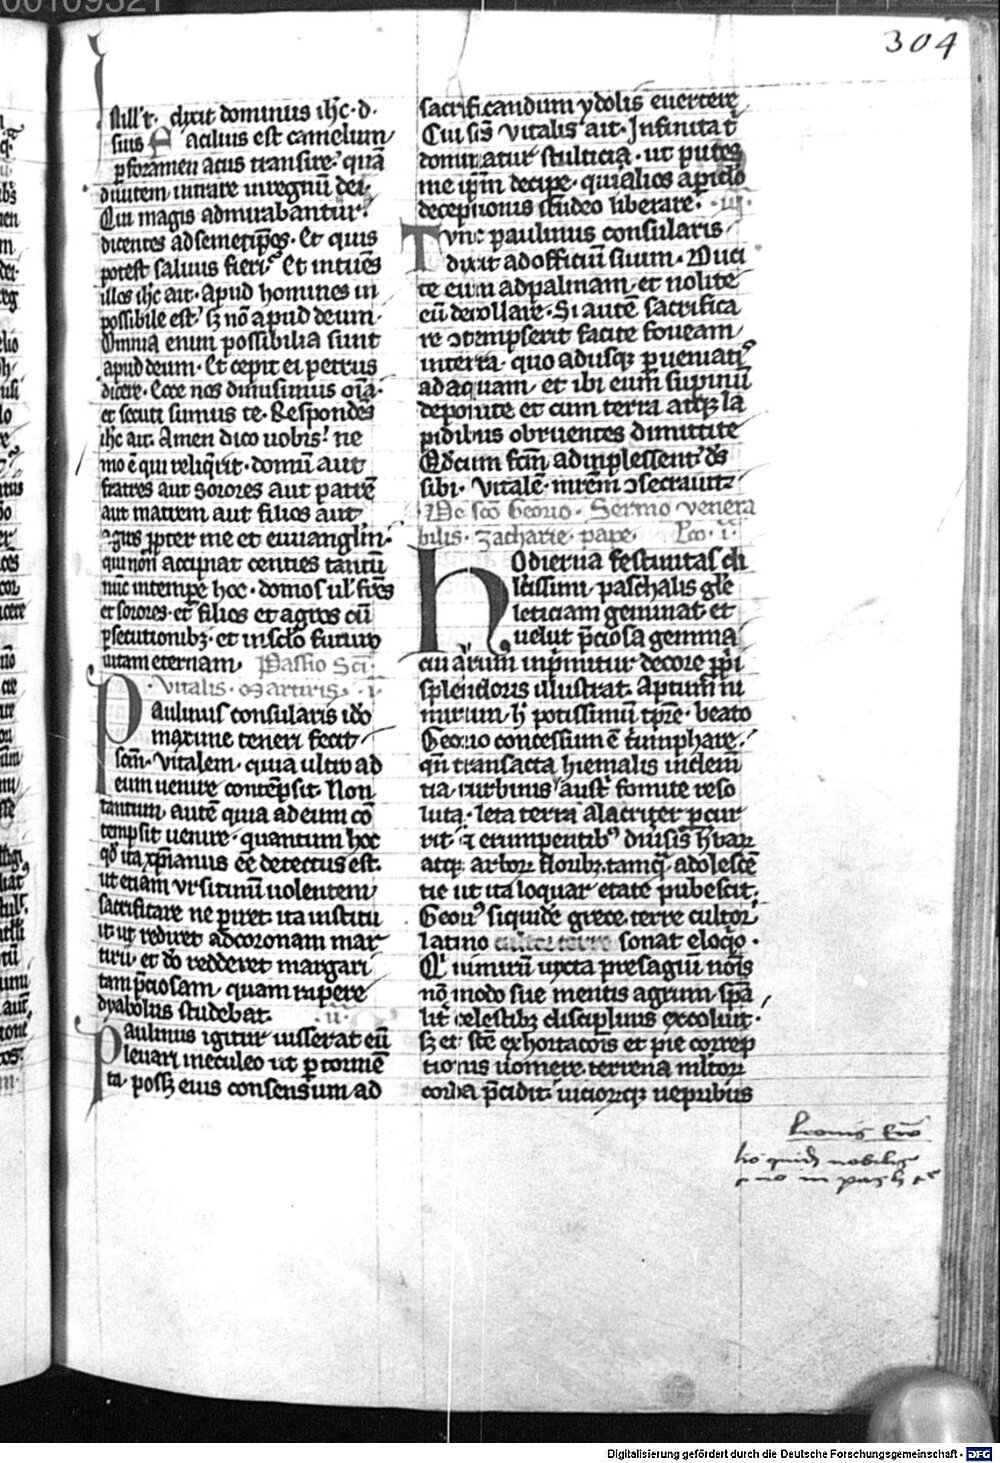 304
In ill' t. dixit dominus ihc d.
suis Facilius est camelum
p foramen acus transire quā
divitem intrare in regnū dei.
Qui magis admirabantur
dicentes ad semetipos. Et quis
potest salvus fieri Et intuēs
illos ihc ait. Apud homines in
possibile est sz nō apud deum.
Omnia enim possibilia sunt
apud deum. Et cepit ei petrus
dicere. Ecce nos dimisimus oīa
et secuti sumus te. Respondēs
ihc ait. Amen dico vobis ne
mo ē qui reliqrit. domū aut
fratres aut sorores aut patrē
aut matrem aut filios aut
agros ppter me et euuanglin.
qui non accipiat centies tantū
nūc in tempe hoc. domos ul frēs
et sorores et filios et agros cū
psecutionibz. et in sclo futuro
vitam eternam. Passio Sci
vitalis. martiris. i.
Paulinus consularis ido
maxime teneri fecit
scm. vitalem. quia ultro ad
eum venire contēpsit. Non
tantum autē quia ad eum cō
tempsit venire. quantum hoc
qd ita xpianus ee detectus est.
ut etiam ursitinū volentem
sacrificare ne piret. ita institu
it ut rediret ad coronam mar
tirii. et do redderet margari
tam pciosam quam rapere
dyabolus studebat. .ii.
Paulinus igitur iusserat eū
levari in eculeo ut p tormē
ta. possz eius consensum ad
sacrificandum ydolis evertere
Cui sis vitalis ait. Infinita t
dominatur stulticia. ut putes
me ipm decipe. qui alios a piclo
deceptionis studeo liberare. .iii.
Tunc paulinus consularis
dixit ad officiū suum. Duci
te eum ad palmam. et nolite
eū decollare. Si autē sacrifica
re ɔtempserit facite foveam
in terra. quo adusqz pveniatis
ad aquam. et ibi eum supinū
deponite et cum terra atqz la
pidibus obruentes dimittite
Qd cum fcm adinplessent ds
sibi. vitalē. mrēm ɔsecravit
De sco Georio. Sermo venera
bilis. zacharie. pape. Lco. i.
Hodierna festivitas di
lcissimi. paschalis gle
leticiam geminat et
velut pciosa gemma
cū aurum inprimitur decore ppi
splendoris illustrat. Aptum ni
mirum. h potissimū tpre. beato
Georio concessum ē triumphare.
qn transacta hiemalis inclem
tia. turbinis aust fomite reso
luta. leta terra alacriter pcur
rit. et erumpentib divisis hbar
atqz arbor floribz. tamq adolescē
tie ut ita loquar etate pubescit.
Geori siquide grece. terre cultor
latino sonat eloqo.
Q nimirū iuxta presagiū nois
nō modo sue mentis agrum spa
lit celestibz disciplinis excoluit.
sz et scē exhortacōis et pie correp
tionis vomere. terrena mltor
corda pcidit. viciorqz vepribus